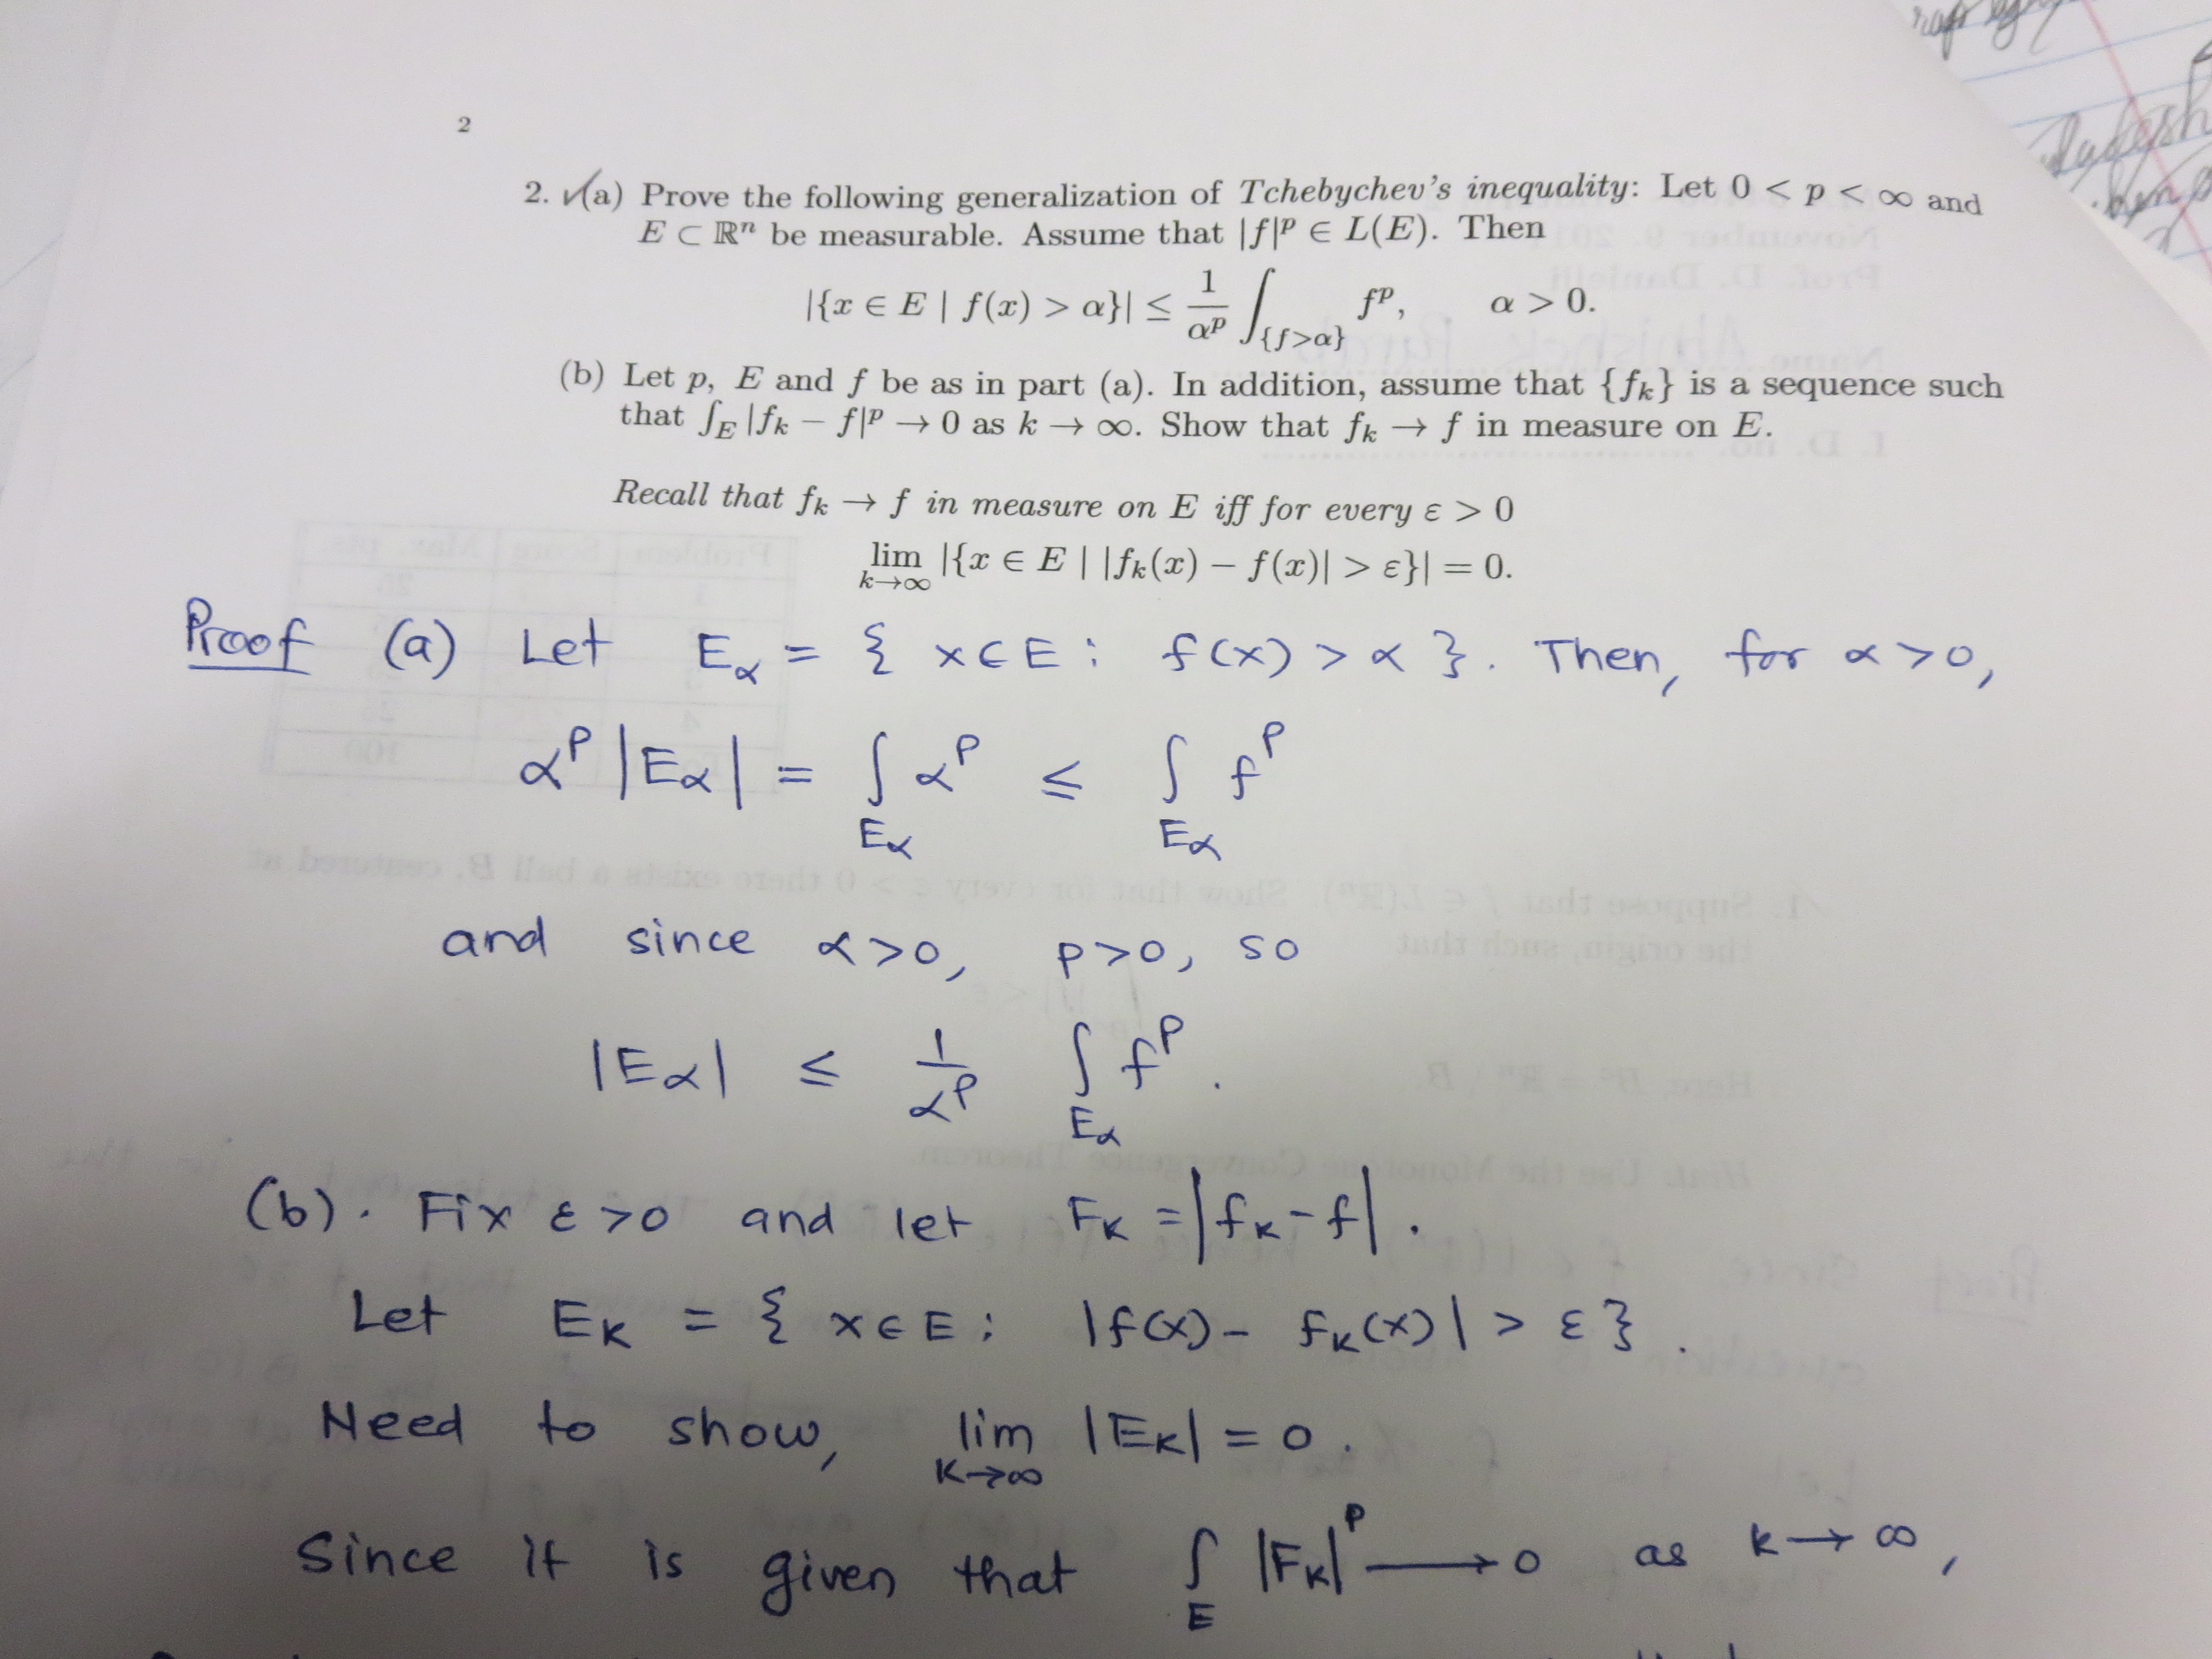 2
2. (a) Prove the following generalization of Tchebychev's inequality: Let 0 < p < ∞ and
E ⊂ ℝⁿ be measurable. Assume that |f|ᵖ ∈ L(E). Then
|{x ∈ E | f(x) > α}| ≤ 1/αᵖ ∫_{f>α} fᵖ, α > 0.
(b) Let p, E and f be as in part (a). In addition, assume that {fₖ} is a sequence such
that ∫_E |fₖ − f|ᵖ → 0 as k → ∞. Show that fₖ → f in measure on E.
Recall that fₖ → f in measure on E iff for every ε > 0
lim_{k→∞} |{x ∈ E | |fₖ(x) − f(x)| > ε}| = 0.
Proof (a) Let E_α = { x ∈ E : f(x) > α }. Then, for α > 0,
αᵖ |E_α| = ∫_{E_α} αᵖ ≤ ∫_{E_α} fᵖ
and since α > 0, p > 0, so
|E_α| ≤ 1/αᵖ ∫_{E_α} fᵖ.
(b). Fix ε > 0 and let Fₖ = |fₖ − f|.
Let Eₖ = { x ∈ E : |f(x) − fₖ(x)| > ε }.
Need to show, lim_{k→∞} |Eₖ| = 0.
Since it is given that ∫_E |Fₖ|ᵖ ⟶ 0 as k → ∞,